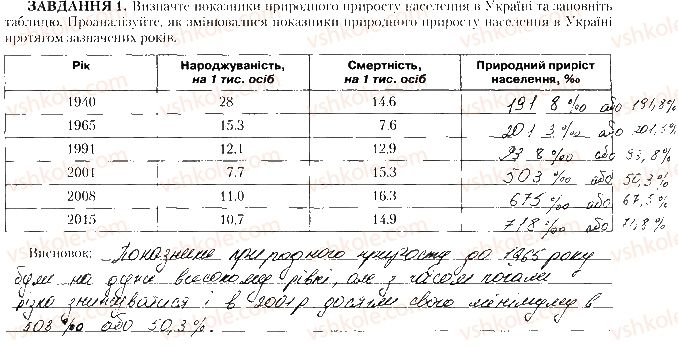 ЗАВДАННЯ 1. Визначте показники природного приросту населення в Україні та заповніть
таблицю. Проаналізуйте, як змінювалися показники природного приросту населення в Україні
протягом зазначених років.
Рік Народжуваність, на 1 тис. осіб Смертність, на 1 тис. осіб Природний приріст населення, ‰
1940 28 14.6 191 8 ‰ або 191,8%
1965 15.3 7.6 201 3 ‰ або 201,3%
1991 12.1 12.9 93 8 ‰ або 93,8%
2001 7.7 15.3 503 ‰ або 50,3%
2008 11.0 16.3 675 ‰ або 67,5%
2015 10,7 14.9 718 ‰ або 71,8%
Висновок: Показники природного приросту до 1965 року
були на дуже високому рівні, але з часом почали
різко знижуватися і в 2001р досягли свого мінімуму в
503 ‰ або 50,3%.
vshkole.com